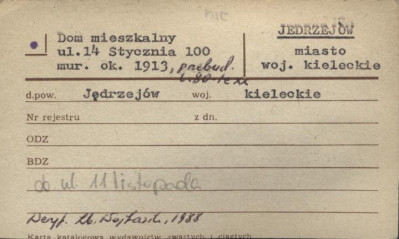 nie
JĘDRZEJÓW
Dom mieszkalny
ul.14 Stycznia 100
miasto
mur. ok. 1913, przebud.
woj. kieleckie
l. 80-te XX
d.pow. Jędrzejów woj. kieleckie
Nr rejestru z dn.
ODZ
BDZ
ob ul. 11 listopada
1988
Karta katalogowa wydawnictw zwartych i ciągłych